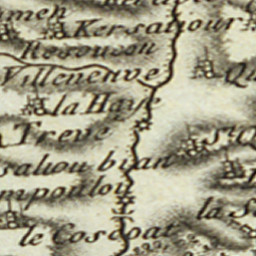 men
Kersahour
Resoucou
Villeneuve
Qu
la Haÿe
Treve
S.t Q
sahou bian
mpoulou
la S
le Coscoat